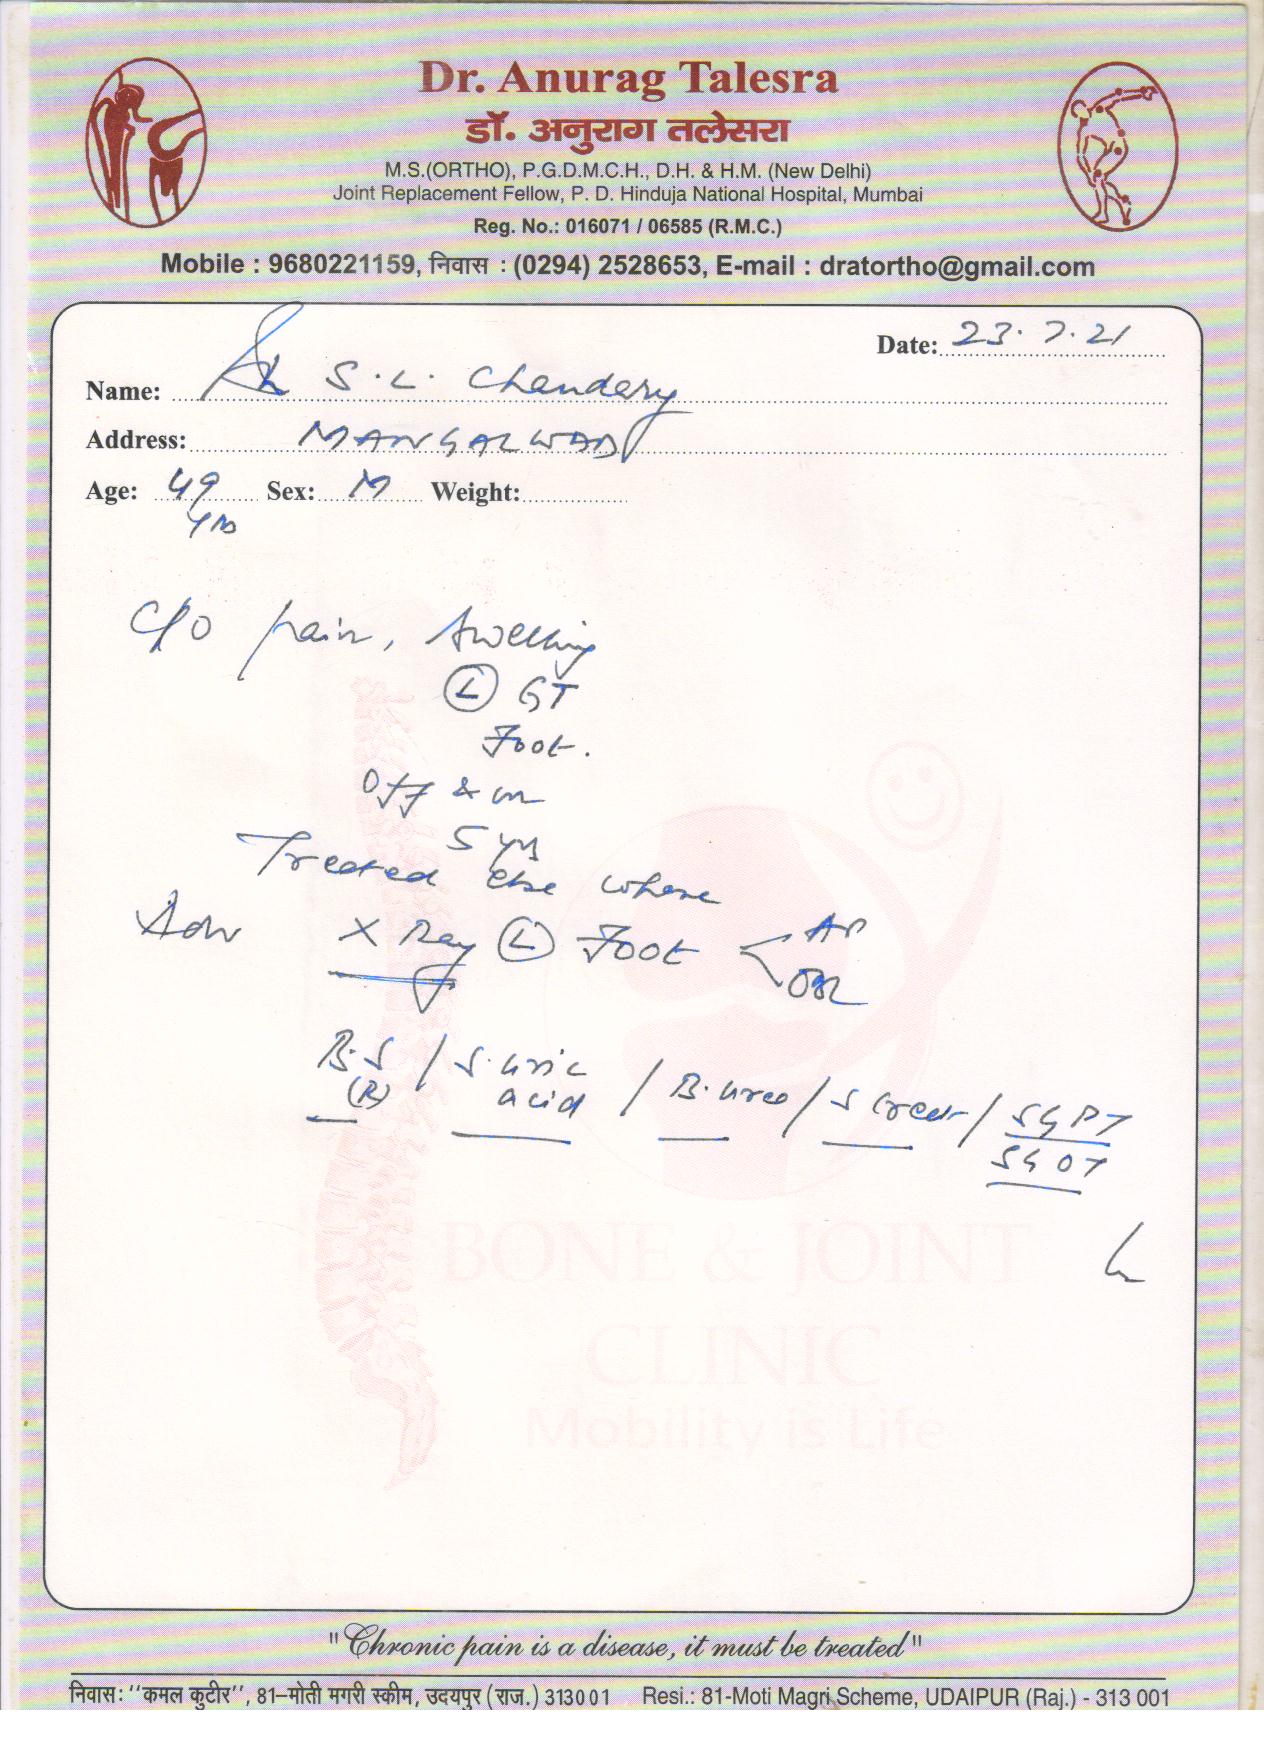 Dr. Anurag Talesra
डॉ. अनुराग तलेसरा
M.S.(ORTHO), P.G.D.M.C.H., D.H. & H.M. (New Delhi)
Joint Replacement Fellow, P. D. Hinduja National Hospital, Mumbai
Reg. No.: 016071 / 06585 (R.M.C.)
Mobile : 9680221159, निवास : (0294) 2528653, E-mail : dratortho@gmail.com
Date: 23.7.21
Name: Sh S.L. Chaudery
Address: MANGALWAD
Age: 49 Sex: M Weight:
yrs
C/o pain, swelling
(L) GT
Foot.
Off & on
5 yrs
Treated else where
Adv X Ray (L) Foot < AP
OBL
B.S / S.uric / B.urea / S creat / SGPT
(R) acid SGOT
BONE & JOINT
CLINIC
Mobility is Life
"Chronic pain is a disease, it must be treated"
निवास: ''कमल कुटीर'', 81–मोती मगरी स्कीम, उदयपुर (राज.) 313001 Resi.: 81-Moti Magri Scheme, UDAIPUR (Raj.) - 313 001